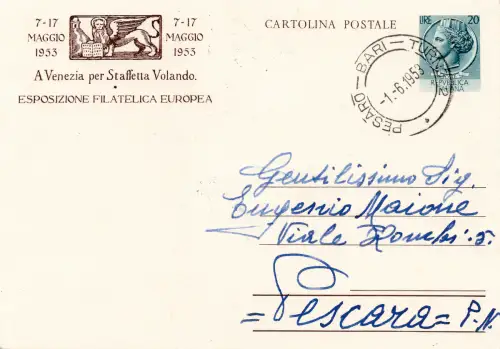 7-17
MAGGIO
1953
7-17
MAGGIO
1953
A Venezia per Staffetta Volando.
ESPOSIZIONE FILATELICA EUROPEA
CARTOLINA POSTALE
LIRE 20
REPUBBLICA
ITALIANA
PESARO - BARI -
-1.-6.1953
Gentilissimo Sig.
Eugenio Maione
Viale
Pescara = P.N.